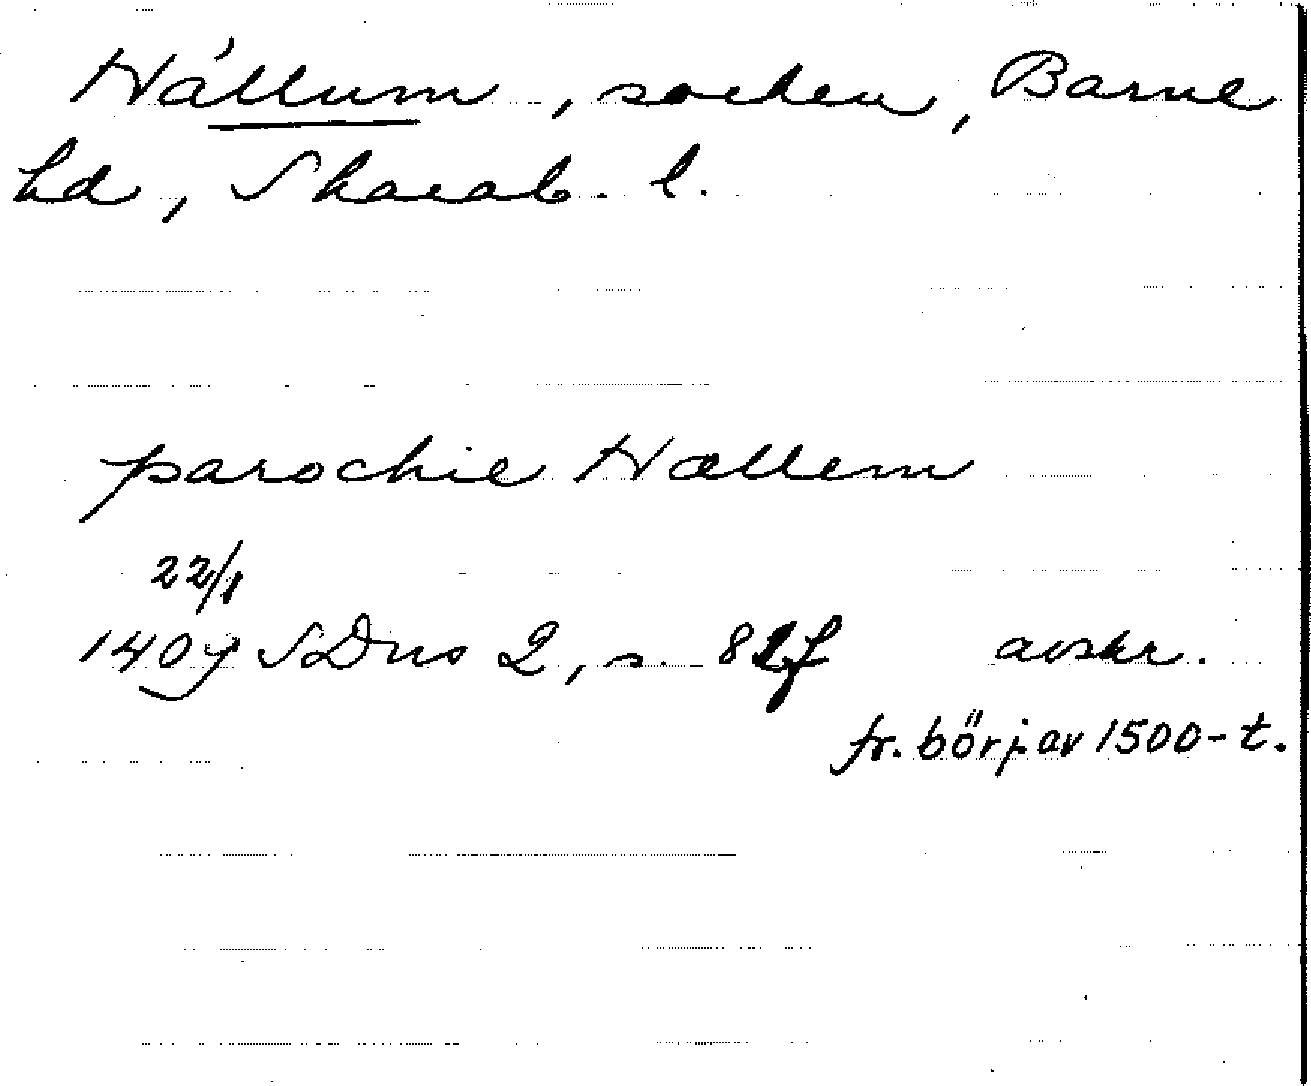 Hällum, socken, Barne
hd, Skarab. l.
parochie Hællem
22/1
1409 SDns 2, s. 82f avskr.
fr. börj. av 1500-t.